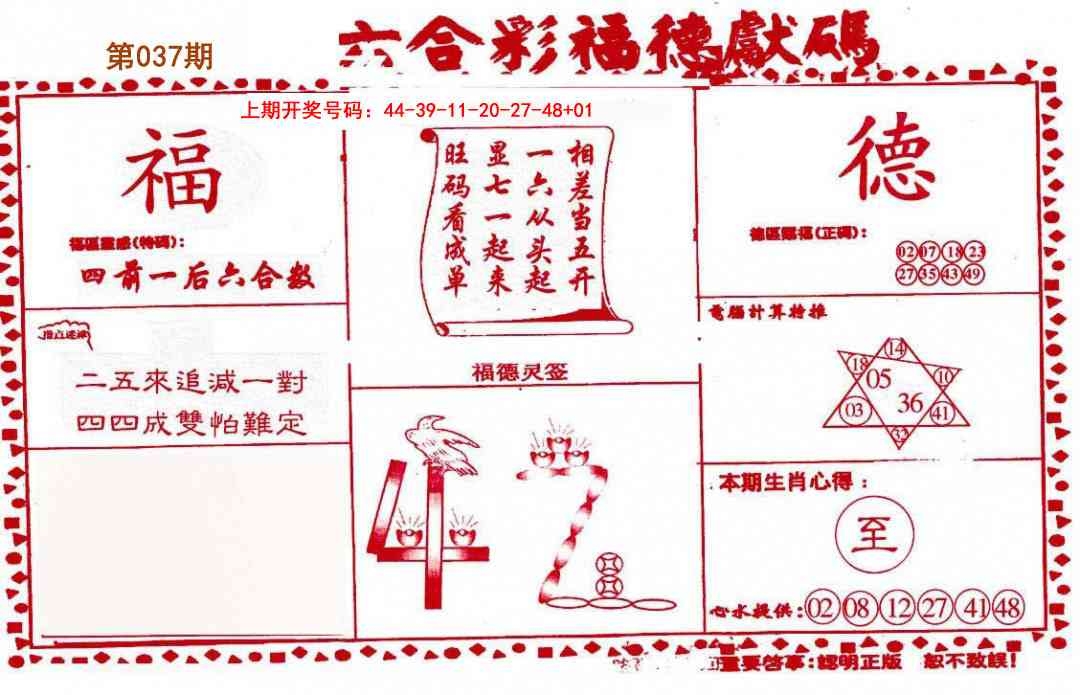 第037期
六合彩福德獻碼
上期开奖号码：44-39-11-20-27-48+01
福
福區靈感(特碼)：
四前一后六合数
二五來追减一對
四四成雙怕難定
相差当五开
一六从头起
显七一起来
旺码看成单
福德灵签
42
德
德區賜福(正碼)：
02 07 18 23
27 35 43 49
電腦計算特推
14
18 10
05
03 36 41
32
本期生肖心得：
至
心水提供：02 08 12 27 41 48
重要啓事：認明正版 恕不致誤！